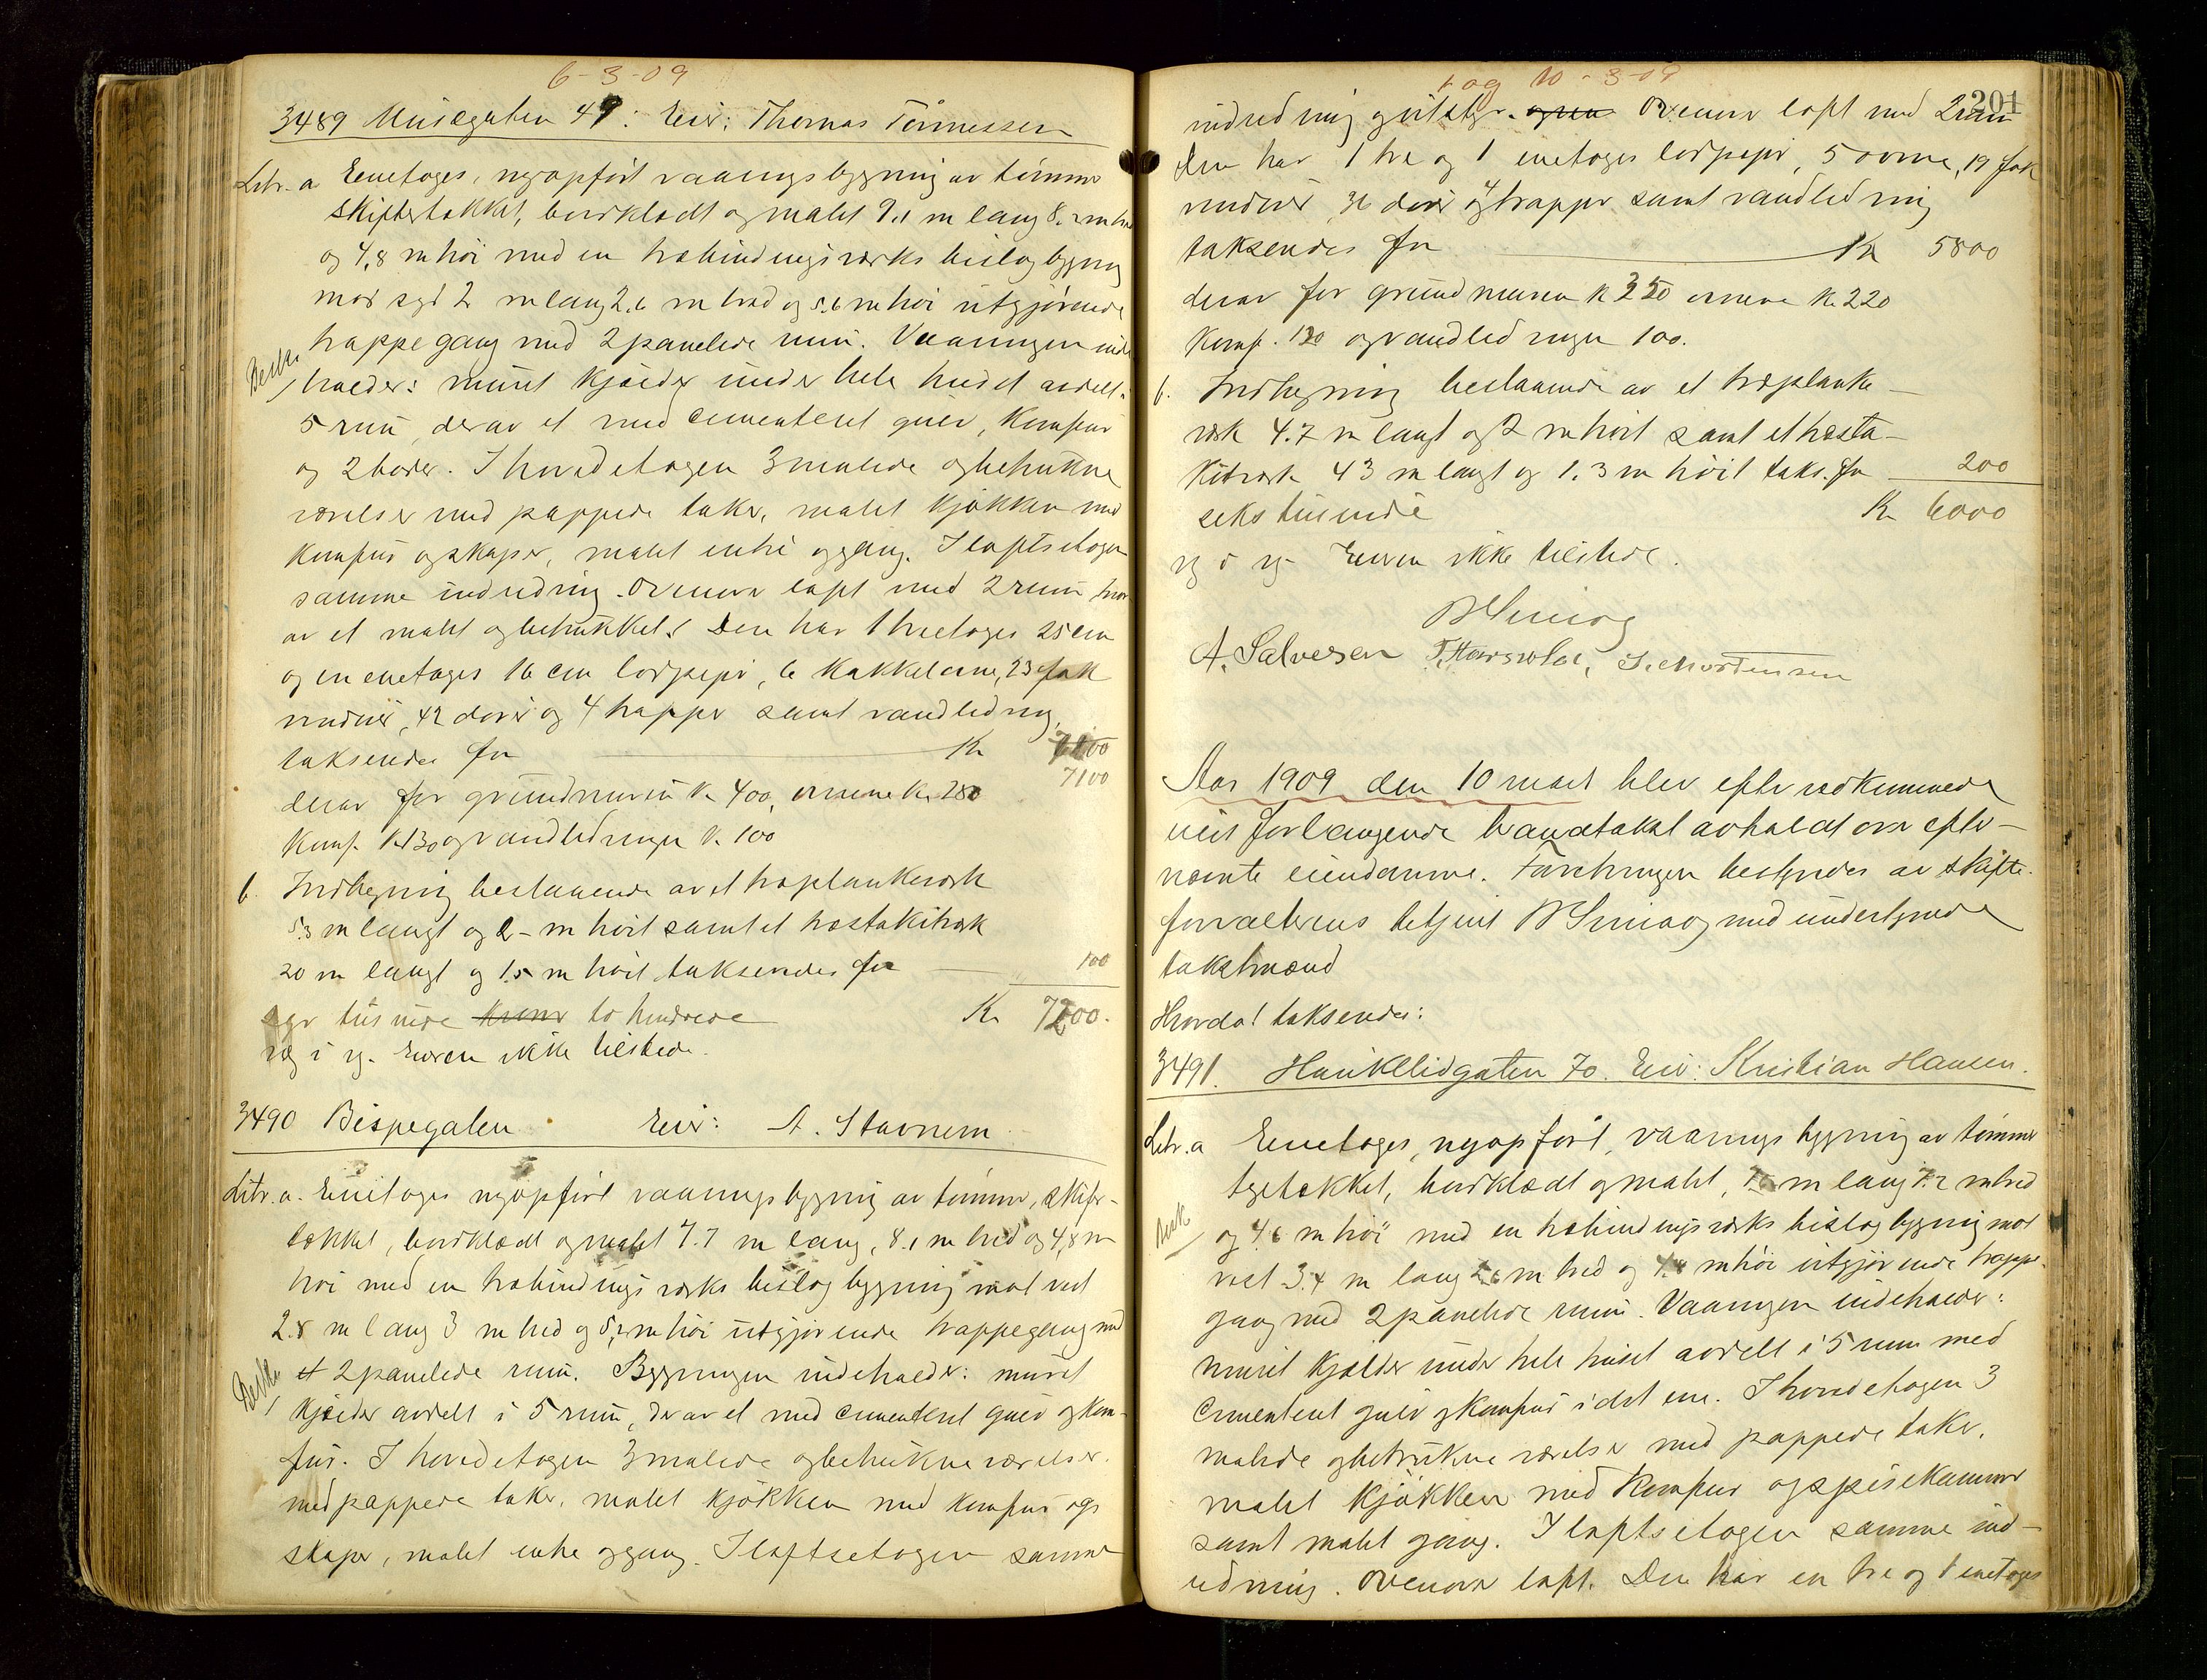 6-3-09
3489 Musegaten 49: Eier: Thomas Tönnessen
Litr. a Eenetages, nyopført vaaningsbygning av tömmer
skiftertækket, bordklædt og malet 9.1 m lang 8.2 m bred
og 4,8 m höi med en træbindingsverks bislagbygning
mot syd 2 m lang 2.6 m bred og 5.6 m höi utgjörende
trappegang med 2 panelede rum. Vaaningen inde
Beskr.
holder: muret kjælder under hele huset avdelt i
5 rum, derav et med cementeret gulv, komfur
og 2 boder. I hovedetagen 3 malede og betrukne
værelser med pappede taker, malet kjökken med
komfur og skaper, malet entré og gang. I loftsetagen
samme indredning. Ovenover loft med 2 rum hvor-
av et malet og betrukket. Den har 1 treetages 25 cm
og en enetages 16 cm lodpipe, 6 kakkelovne, 23 fak
vinduer, 42 dører og 4 trapper samt vandledning,
taksendes for Kr 7100
7100
derav for grundmuren k. 400, ovnene kr. 280
komf. k. 130 og vandledningen k. 100
b. Indhegning bestaaende av et træplankeværk
5.3 m langt og 2 - m höit samt et træstakitværk
20 m langt og 1.5 m höit taksendes for 100
syv tusinde kroner to hundrede Kr 7200.
æg i æg. Eieren ikke tilstede.
3490 Bispegaten Eier: A. Stavnem
Litr. a. Eenetages nyopført vaaningsbygning av tömmer, skifer-
tækket, bordklædt og malet 7.7 m lang, 8.1 m bred og 4,8 m
höi med en træbindingsverks bislagbygning mot vest
2.8 m lang 3 m bred og 5,2 m höi utgjörende trappegang med
et 2 panelede rum. Bygningen indeholder: muret
Beskr.
kjælder avdelt i 5 rum, derav et med cementeret gulv og kom-
fur. I hovedetagen 3 malede og betrukne værelser
med pappede taker, malet kjökken med komfur og
skaper, malet entre og gang. I loftsetagen samme
1 og 10-3-09
201
indredning og utstyr. Ovenover loft med 2 rum
Den har 1 tre og 1 enetages lodpipe, 5 ovne, 19 fak
vinduer 36 dører og 4 trapper samt vandledning
taksendes for Kr 5800
derav for grundmuren k 350 ovnene k. 220
komf. 130 og vandledningen 100.
b. Indhegning bestaaende av et træplanke-
værk 4.7 m langt og 2 m höit samt et træsta-
kitværk 43 m langt og 1.3 m höit taks. for 200
seks tusinde Kr 6000
æg i æg Eieren ikke tilstede.
A. Salvesen T. Haarsvold, S. Mortensen
Aar 1909 den 10 mars blev efter vedkommende
eiers forlangende brandtakst avholdt over efter-
nævnte eiendomme. Forretningen bestyredes av skifte-
forvalterens betjent med undertegnede
takstmænd
Hvorda! taksendes:
3491. Haukelidgaten 70. Eier: Kristian Hansen.
Litr. a Eenetages, nyopført, vaaningsbygning av tömmer
tegltækket, bordklædt og malet, 7.6 m lang 7.2 m bred
Besk
og 4.6 m höi med en træbindingsverks bislagbygning mot
vest 3.4 m lang 2.6 m bred og 4.8 m höi utgjörende trappe-
gang med 2 panelede rum. Vaaningen indeholder:
muret kjælder under hele huset avdelt i 5 rum med
cementeret gulv og komfur i det ene. I hovedetagen 3
malede og betrukne værelser med pappede taker,
malet kjökken med komfur og spisekammer
samt malet gang. I loftsetagen samme ind-
redning. Ovenover loft. Den har en tre og 1 enetages